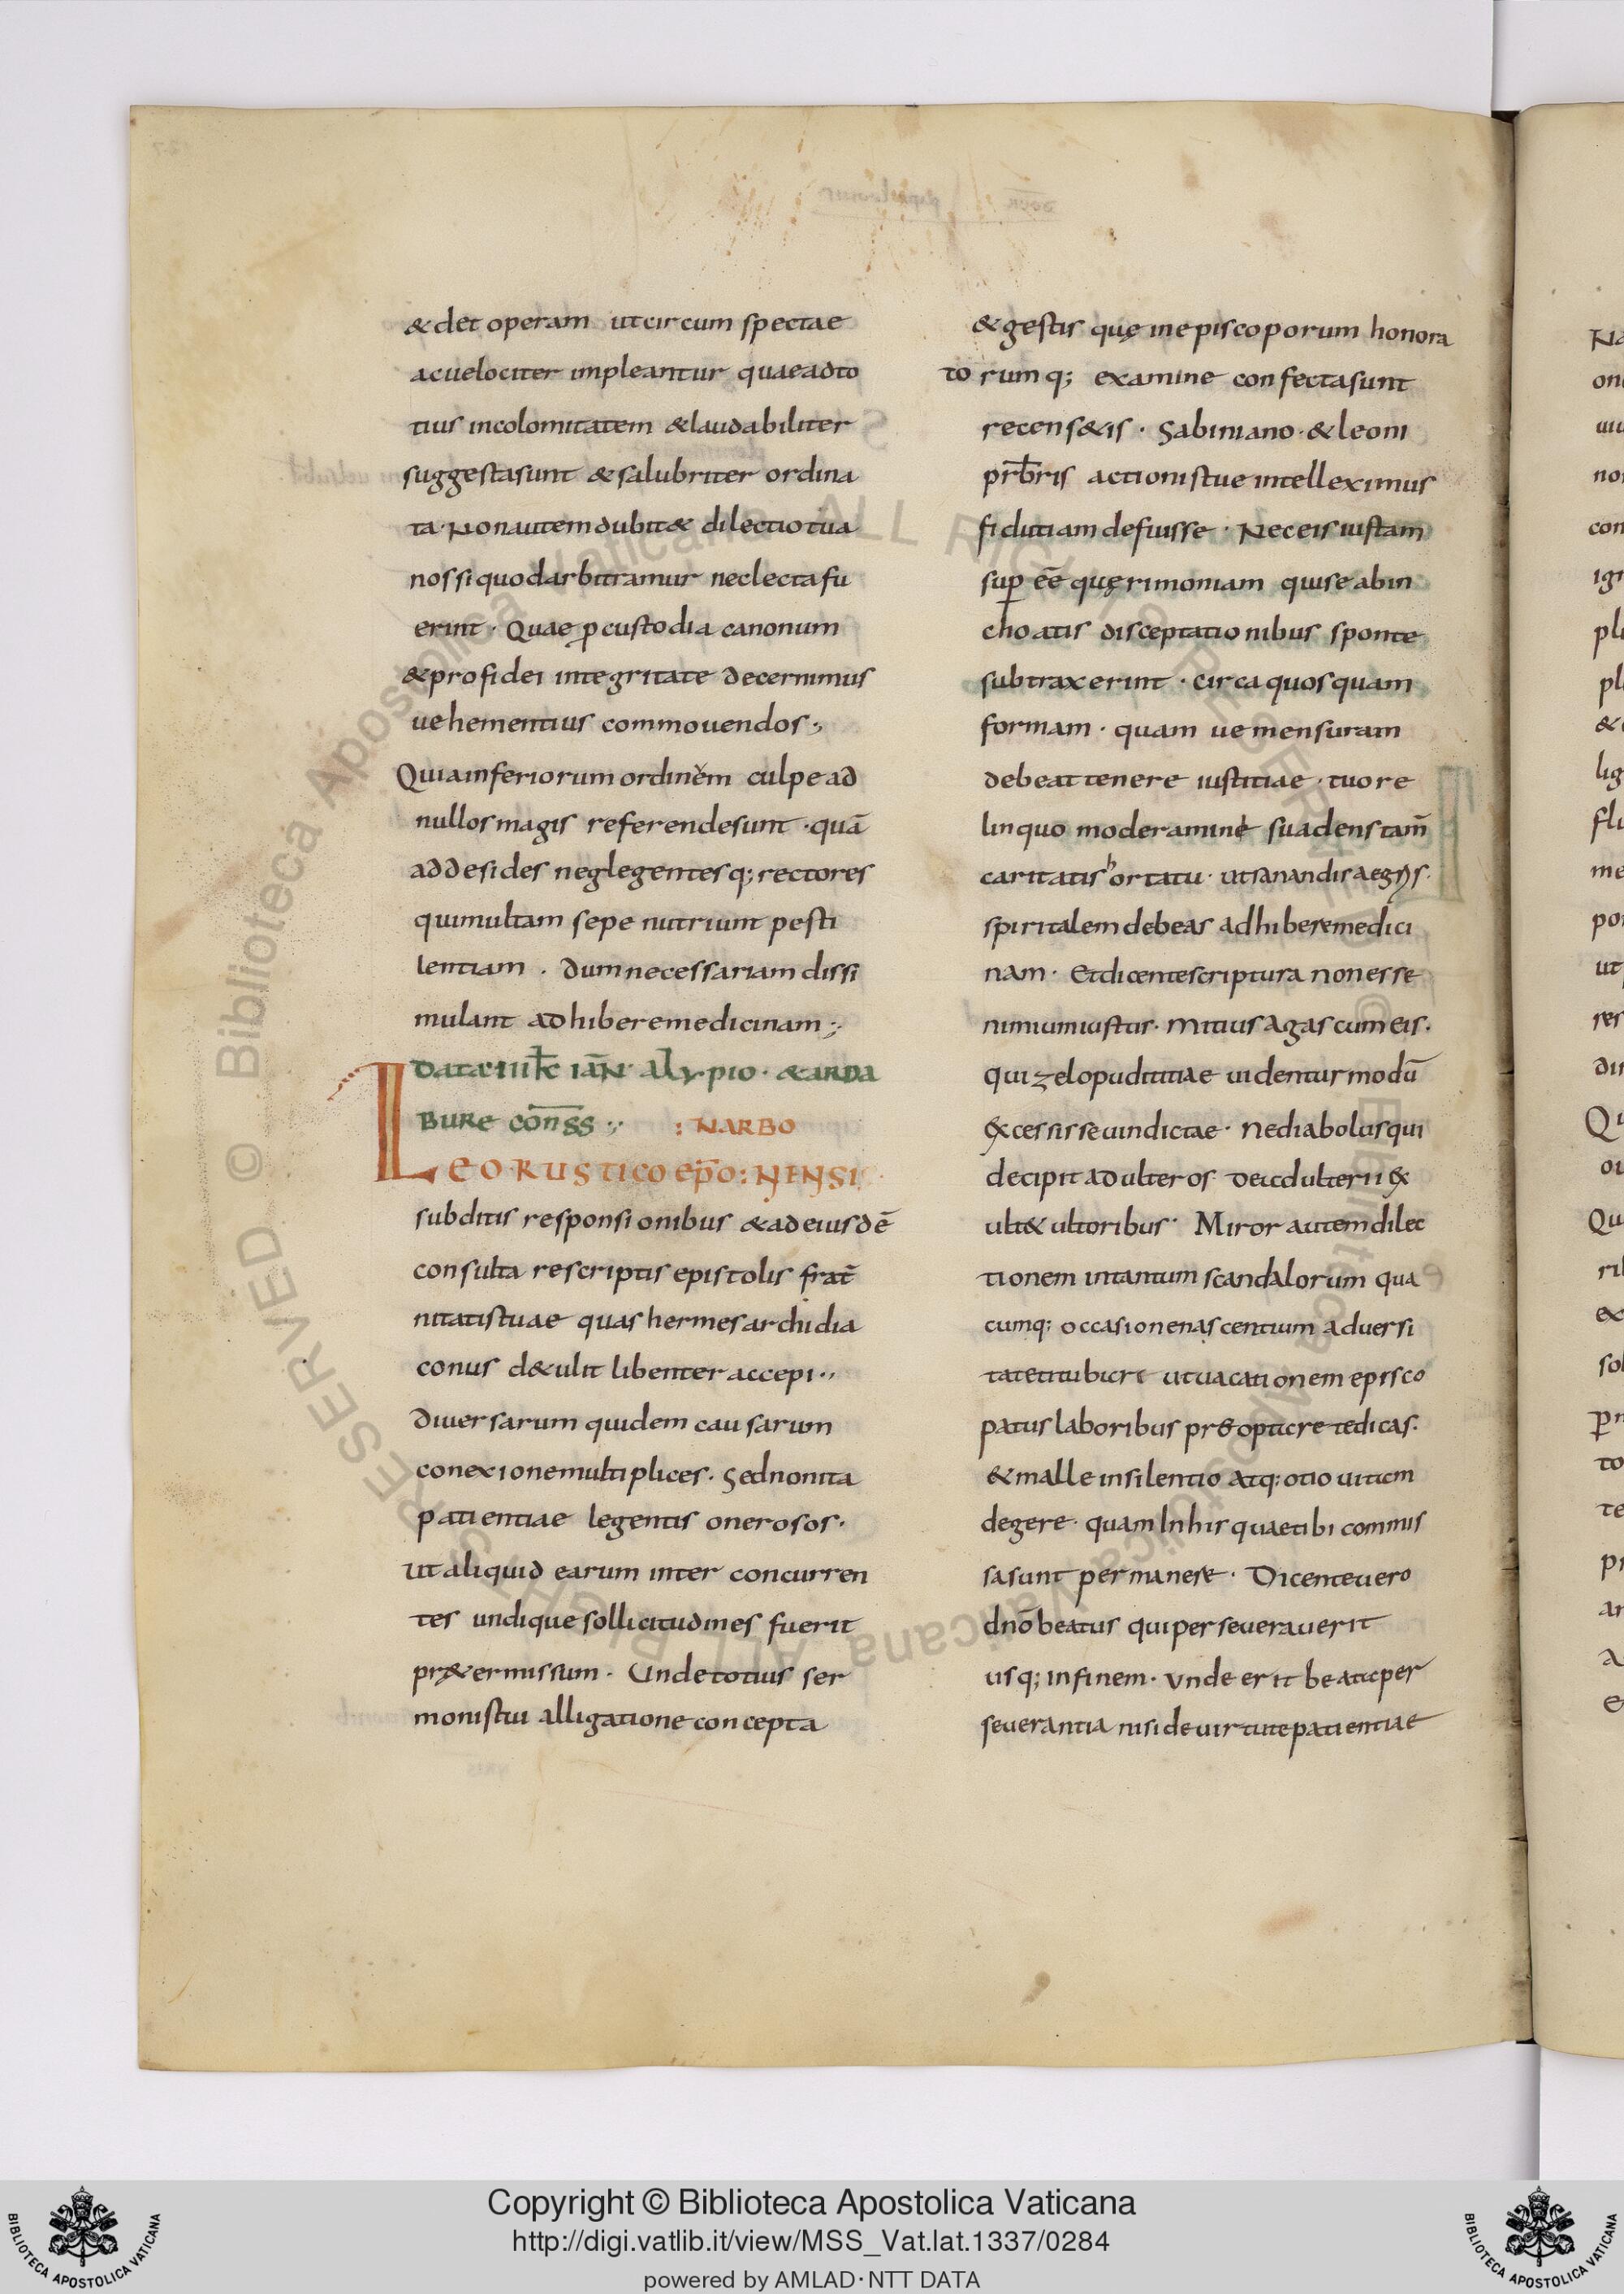 & det operam ut circum spectae
ac uelociter impleantur quae ad to
tius incolomitatem & laudabiliter
suggesta sunt & salubriter ordina
ta · Non autem dubit& dilectio tua
nos si quod arbitramur neclecta fu
erint · Quae ꝑ custodia canonum
& pro fidei integritate decernimus
uehementius commouendos ·,
Quia inferiorum ordinem culpe ad
nullos magis referende sunt · quā
ad desides neglegentesq; rectores
qui multam sepe nutriunt pesti
lentiam · dum necessariam dissi
mulant adhibere medicinam ;,
Data · IIII kł IAÑ Alypio · & ARDA
BURE CO̅N̅SS ;, : NARBO
LEO · RUSTICO ep̄o : NENSI
subditis responsionibus & ad eiusdē
consulta rescriptis epistolis frat̄
nitatis tuae quas hermes archidia
conus d&ulit libenter accepi ·,
diuersarum quidem causarum
conexione multiplices · Sed non ita
patientiae legentis onerosos ·
ut aliquid earum inter concurren
tes undique sollicitudines fuerit
pr&ermissum · Unde totius ser
monis tui alligatione concepta
& gestis quę in episcoporum honora
to rumq; examine confecta sunt
recens&is · Sabiniano · & leoni
prb̄ris actionis tue intelleximus
fidutiam defuisse · Nec eis iustam
suꝑ eē quęrimoniam qui se ab in
choatis disceptationibus sponte
subtraxerint · Circa quos quam
formam · quam ue mensuram
debeat tenere iustitiae · tuo re
linquo moderamine suadens tam̄
caritatis hortatu · ut sanandis aegris ·
spiritalem debeas adhibere medici
nam · Et dicente scriptura non esse
nimium iustus · mitius agas cum eis ·
qui zelo puditiae uidentur modū
excessisse uindictae · ne diabolus qui
decipit adulteros · de adulterii ex
ult& ultoribus · Miror autem dilec
tionem in tantum scandalorum qua
cumq; occasione nascentium aduersi
tate titubare ut uacationem episco
patus laboribus preoptare te dicas ·
& malle in silentio atq; otio uitam
degere · quam In his quae tibi commis
sa sunt permanere · Dicente uero
dn̄o beatus qui perseuerauerit
usq; in finem · Vnde erit beata per
seuerantia nisi de uirtute patientiae
Copyright © Biblioteca Apostolica Vaticana
http://digi.vatlib.it/view/MSS_Vat.lat.1337/0284
powered by AMLAD·NTT DATA
BIBLIOTECA APOSTOLICA VATICANA
BIBLIOTECA APOSTOLICA VATICANA